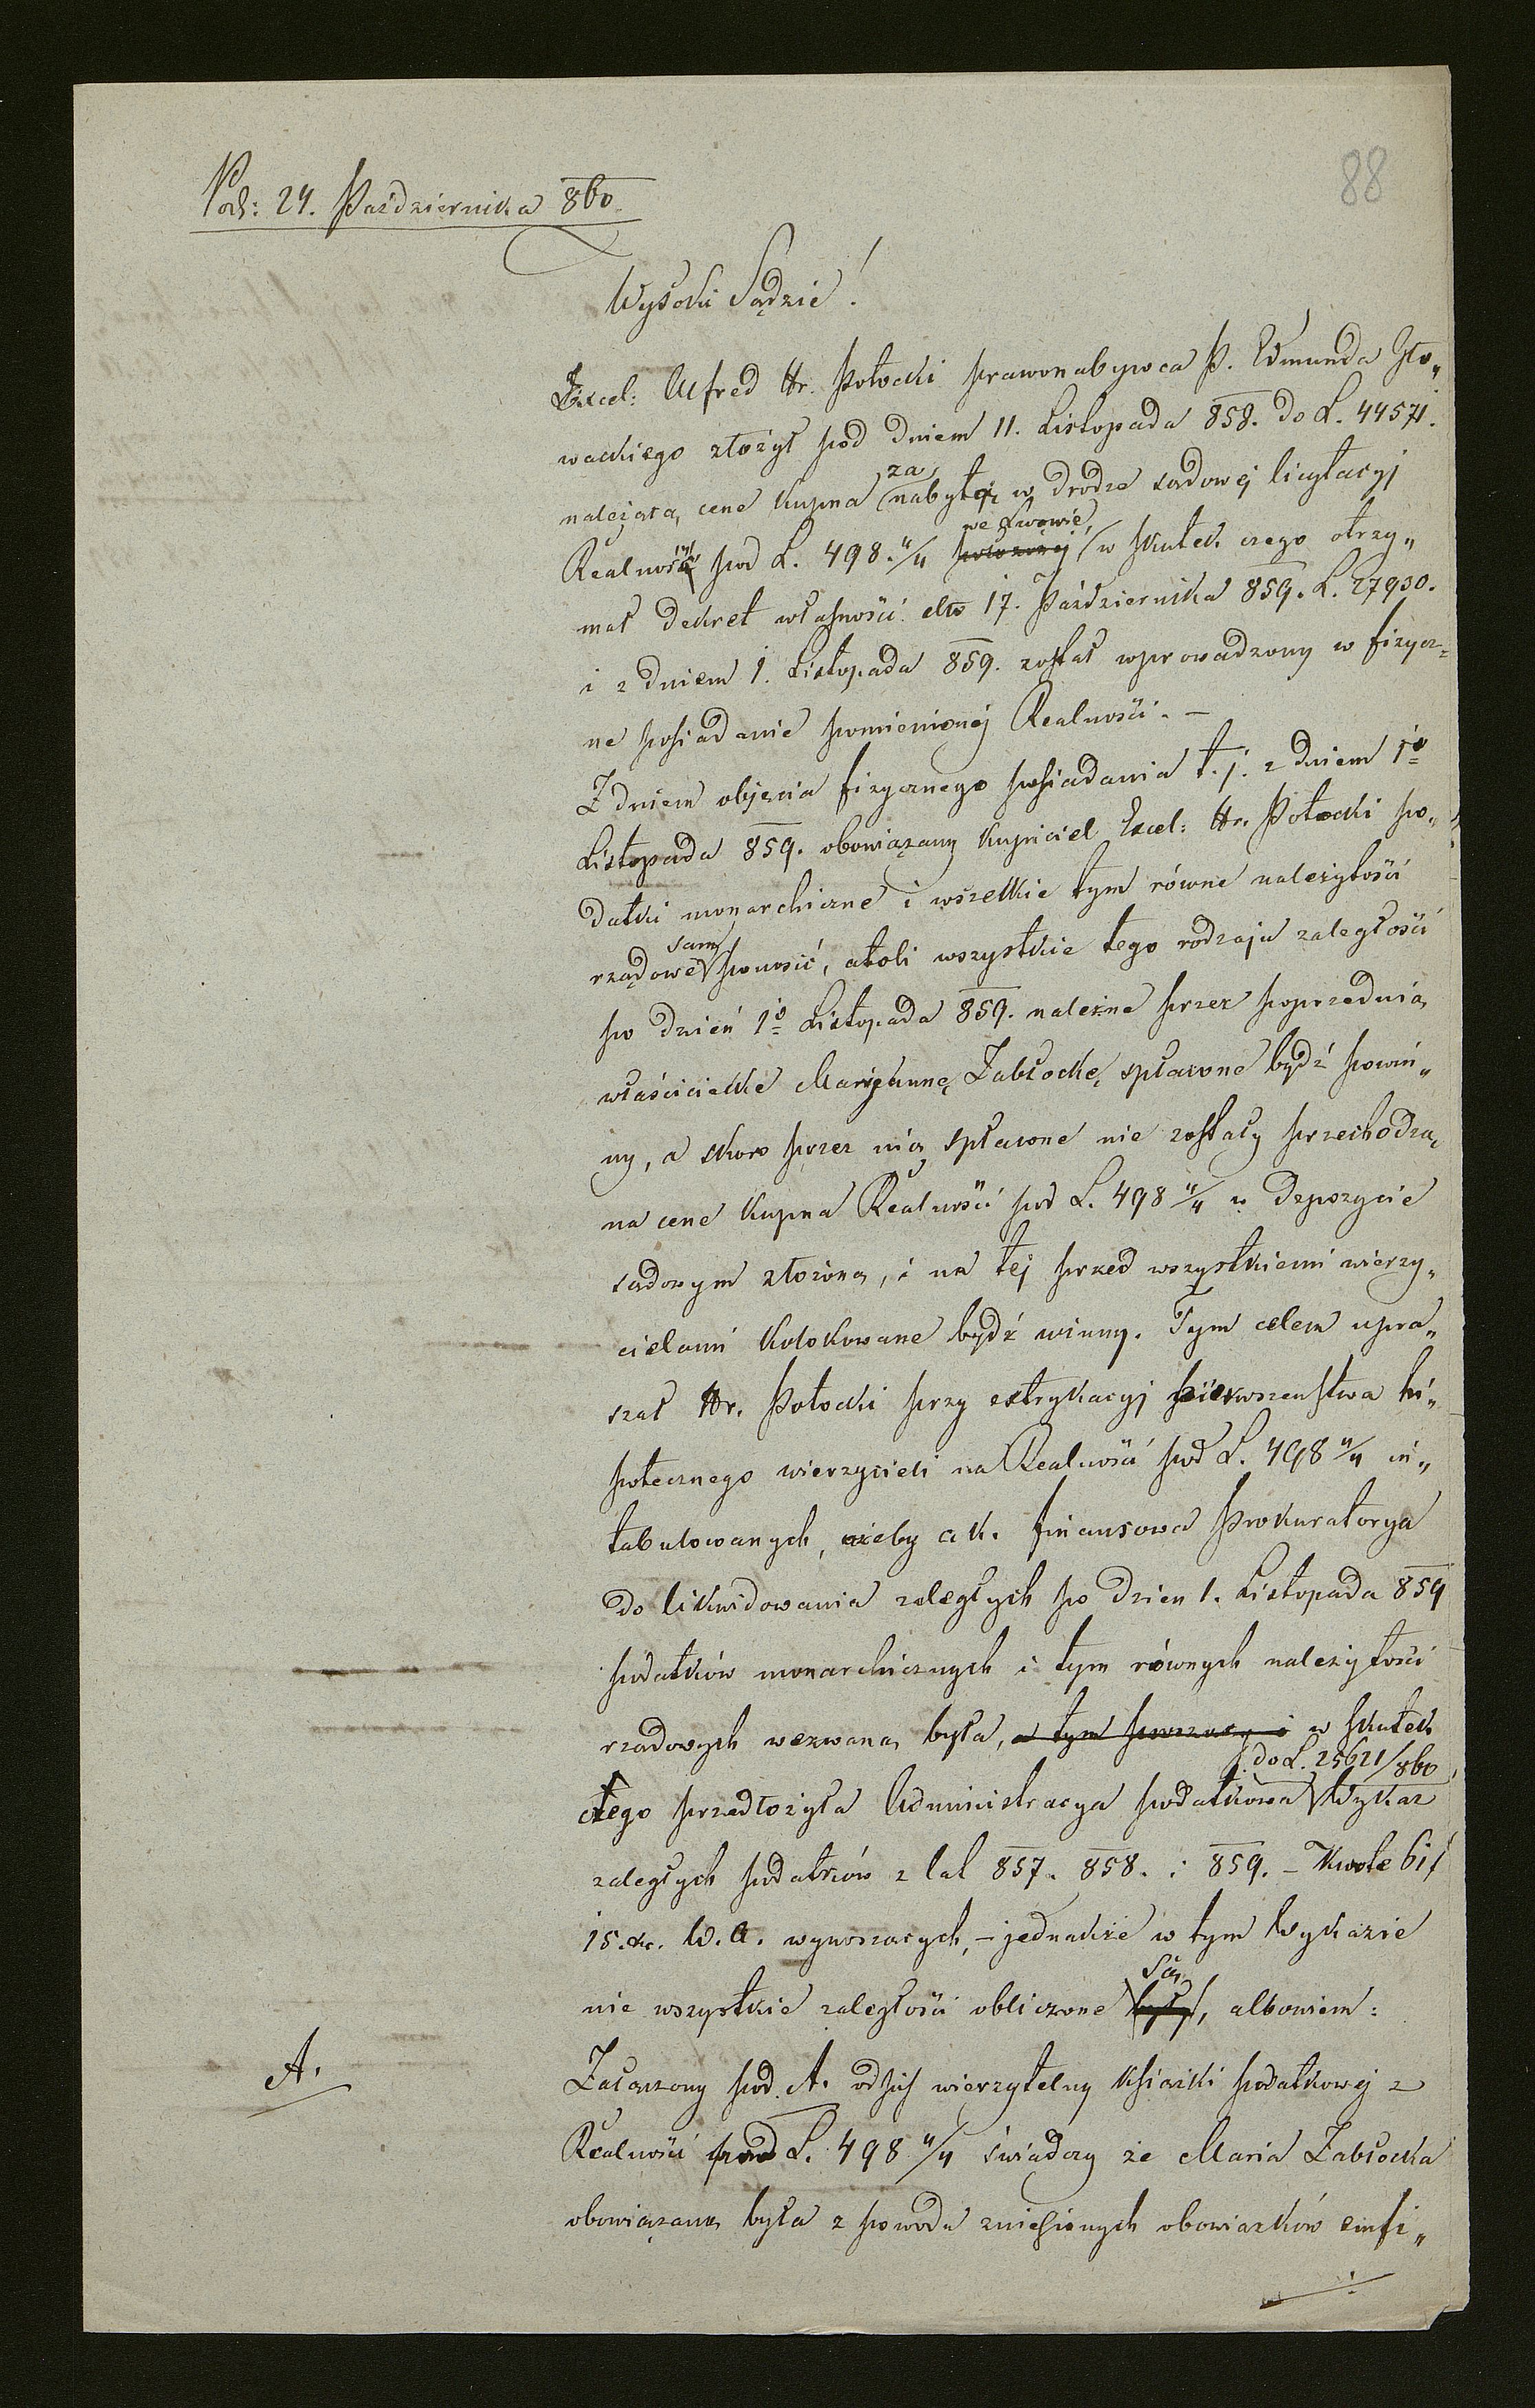 88
Pod: 24. Października 860.
Wysoki Sądzie!
Excel: Alfred Hr. Potocki prawonabywca P. Edmunda Gło„
wackiego złożył pod dniem 11. Listopada 858. do L. 44571.
należącą cenę kupna za nabytą w drodze sądowej licytacyj
Realność pod L. 498 4/4 we Lwowie, w skutek czego otrzy„
mał dekret własności dto 17. Października 859. L. 27930.
i z dniem 1. Listopada 859. został wprowadzony w fizycz=
ne posiadanie pomienionéj Realności. –
Z dniem objęcia fizycznego posiadania t. j. z dniem 1o
Listopada 859. obowiązany kupiciel Excel: Hr. Potocki po„
datki monarchiczne i wszelkie tym równe należytości
rządowe sam ponosić, atoli wszystkie tego rodzaju zaległości
po dzień 1o Listopada 859. należne przez poprzednią
właścicielkę Maryannę Zabłocką spłacone bydź powin„
ny, a skoro przez nią spłacone nie zostały przechodzą
na cenę kupna Realności pod L. 498 4/4 w Depozycie
sądowym złożoną, i na tej przed wszystkiemi wierzy„
cielami kolokowane bydź winny. Tym celem upra„
szał Hr. Potocki przy extrykacyj pierwszeństwa hi„
potecznego wierzycieli na Realność pod L. 498 4/4 in„
tabulowanych, ażeby c. k. finansowa Prokuratorya
do likwidowania zaległych po dzien 1. Listopada 859
podatków monarchicznych i tym równych należytości
rządowych wezwaną była, a tym w skutek
tego przedłożyła Administracya podatkowa do L. 25621/860 Wykaz
zaległych podatków z lat 857. 858. i 859. – Kwotę 61 f
15. xr. W. A. wynoszących, – jednakże w tym Wykazie
nie wszystkie zaległości obliczone są, albowiem:
A.
Załączony pod A. odpis wierzytelny książki podatkowej z
Realności pod L. 498 4/4 świadczy że Maria Zabłocka
obowiązaną była z powodu zniesionych obowiązków emfi„